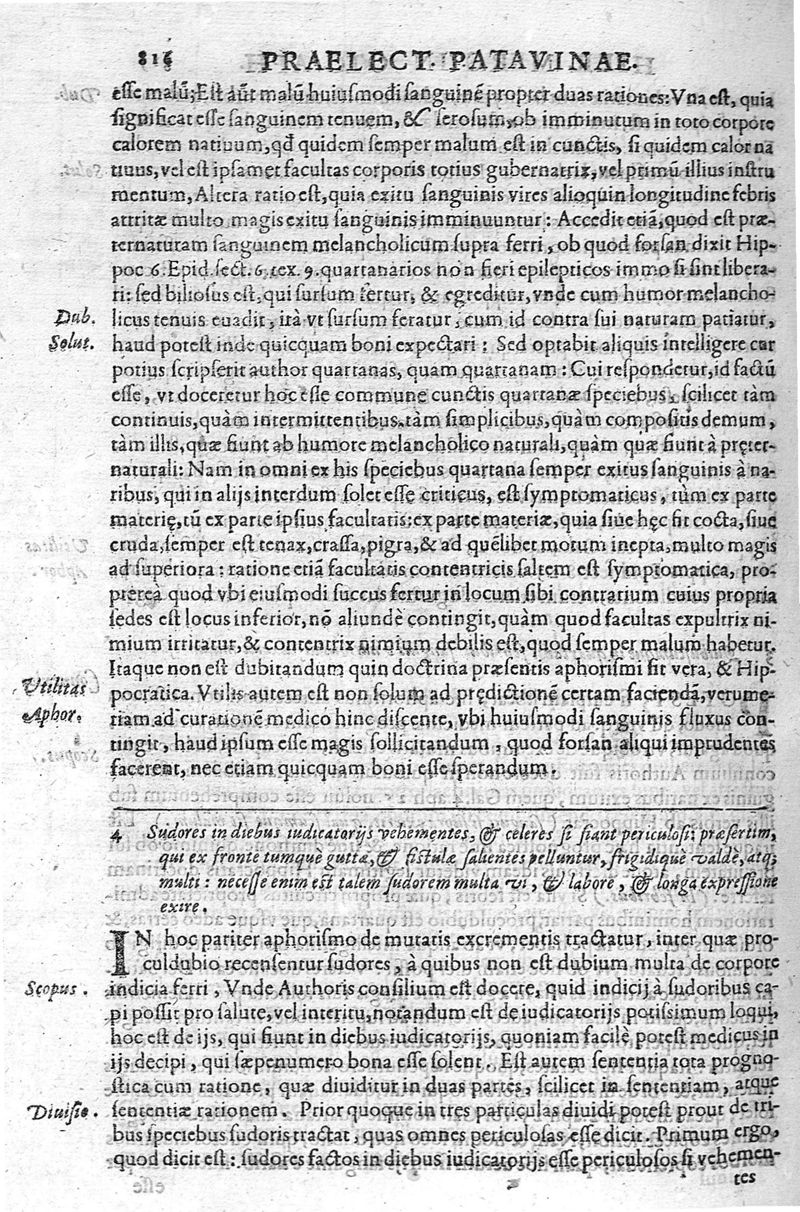 816 PRAELECT. PATAVINAE.
esse malũ; Est aũt malũ huiusmodi sanguinẽ propter duas rationes: Vna est, quia
significat esse sanguinem tenuem, & serosum, ob imminutum in toto corpore
calorem natiuum, qđ quidem semper malum est in cunctis, si quidem calor na
tiuus, vel est ipsamet facultas corporis totius gubernatrix, vel primũ illius instru
mentum, Altera ratio est, quia exitu sanguinis vires alioquin longitudine febris
attritæ multo magis exitu sanguinis imminuuntur: Accedit etiã, quod est præ-
ternaturam sanguinem melancholicum supra ferri, ob quod forsan dixit Hip-
poc 6. Epid. sect. 6. tex. 9. quartanarios non fieri epilepticos immo si sint libera-
ri: sed biliosus est, qui sursum fertur, & egreditur, vnde cum humor melancho-
Dub. licus tenuis euadit, ità vt sursum feratur, cum id contra sui naturam patiatur,
Solut. haud potest inde quicquam boni expectari: Sed optabit aliquis intelligere cur
potius scripserit author quartanas, quam quartanam: Cui respondetur, id factũ
esse, vt doceretur hoc esse commune cunctis quartanæ speciebus, scilicet tàm
continuis, quàm intermittentibus, tàm simplicibus, quàm compositis demum,
tàm illis, quæ fiunt ab humore melancholico naturali, quàm quæ fiunt à pręter-
naturali: Nam in omni ex his speciebus quartana semper exitus sanguinis à na-
ribus, qui in alijs interdum solet esse criticus, est symptomaticus, tùm ex parte
materię, tũ ex parte ipsius facultatis: ex parte materiæ, quia siue hęc sit cocta, siue
cruda, semper est tenax, crassa, pigra, & ad quẽlibet motum inepta, multo magis
ad superiora: ratione etiã facultatis contentricis saltem est symptomatica, pro-
ptereà quod vbi eiusmodi succus fertur in locum sibi contrarium cuius propria
sedes est locus inferior, nõ aliundè contingit, quàm quod facultas expultrix ni-
mium irritatur, & contentrix nimium debilis est, quod semper malum habetur.
Itaque non est dubitandum quin doctrina præsentis aphorismi sit vera, & Hip-
Utilitas pocratica. Vtilis autem est non solum ad prędictionẽ certam faciendã, verume-
Aphor. tiam ad curationẽ medico hinc discente, vbi huiusmodi sanguinis fluxus con-
tingit, haud ipsum esse magis sollicitandum, quod forsan aliqui imprudentes
facerent, nec etiam quicquam boni esse sperandum.
4 Sudores in diebus iudicatorijs vehementes, & celeres si fiant periculosi: præsertim,
qui ex fronte tumquè guttæ, & fistulæ salientes pelluntur, frigidiquè valdè, atq;
multi: necesse enim est talem sudorem multa vi, & labore, & longa expressione
exire.
IN hoc pariter aphorismo de mutatis excrementis tractatur, inter quæ pro-
culdubio recensentur sudores, à quibus non est dubium multa de corpore
Scopus. indicia ferri, Vnde Authoris consilium est docere, quid indicij à sudoribus ca-
pi possit pro salute, vel interitu, notandum est de iudicatorijs potissimum loqui,
hoc est de ijs, qui fiunt in diebus iudicatorijs, quoniam facilè potest medicus in
ijs decipi, qui sæpenumero bona esse solent. Est autem sententia tota progno-
stica cum ratione, quæ diuiditur in duas partes, scilicet in sententiam, atque
Diuisio. sententiæ rationem. Prior quoque in tres particulas diuidi potest prout de tri-
bus speciebus sudoris tractat, quas omnes periculosas esse dicit. Primum ergo,
quod dicit est: sudores factos in diebus iudicatorijs esse periculosos si vehemen-
tes